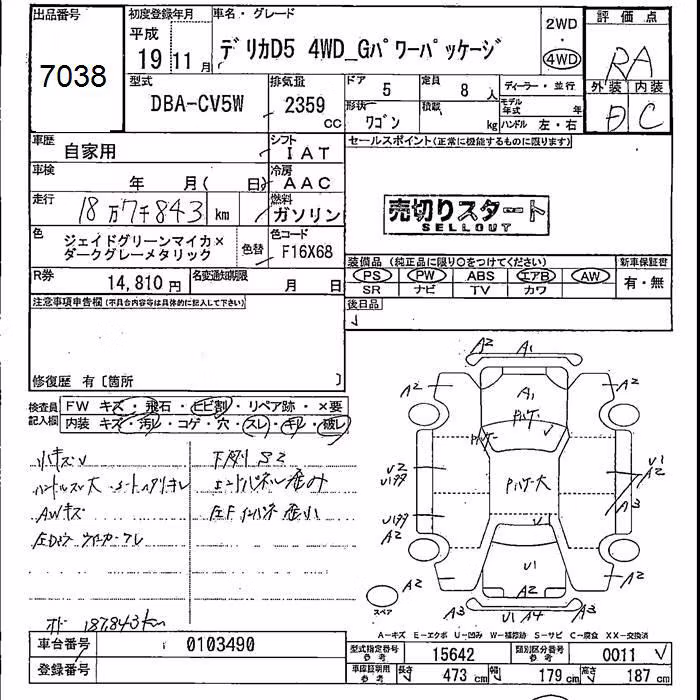 出品番号
7038
初度登録年月
平成
19 11 月
車名・グレード
デリカD5 4WD_Gパワーパッケージ
2WD
・
4WD
評価点
RA
外装 内装
D C
型式
DBA-CV5W
排気量
2359
cc
ドア
5
定員
8 人
形状
ワゴン
積載
kg
ディーラー・並行
モデル年式 年
ハンドル 左・右
車歴
自家用
シフト
IAT
車検
年 月( 日)
冷房
AAC
走行
18万7千843 km
燃料
ガソリン
色
ジェイドグリーンマイカ×
ダークグレーメタリック
色替
色コード
F16X68
R券
14,810 円
名変通知期限
月 日
セールスポイント(正常に機能するものに限ります)
売切りスタート
SELLOUT
装備品 (純正品に限り○をつけてください)
PS PW ABS エアB AW
SR ナビ TV カワ
新車保証書
有・無
後日品
注意事項申告欄(不具合内容等は具体的に記入して下さい)
修復歴 有〔箇所 〕
検査員
記入欄
FW キズ・飛石・ヒビ割・リペア跡・×要
内装 キズ・汚レ・コゲ・穴・スレ・キレ・破レ
小キズU
下廻りS2
AWキズ
187,843km
A2 A1
A2 A1 A2
U2
U1
A2
A3
A2
U1
A2
A2
A3 U1 A4 A3
スペア
A－キズ E－エクボ U－凹み W－補修跡 S－サビ C－腐食 XX－交換済
車台番号
0103490
登録番号
型式指定番号
参考
15642
類別区分番号
参考
0011
車庫証明用
参考
長さ 473 cm 幅 179 cm 高さ 187 cm